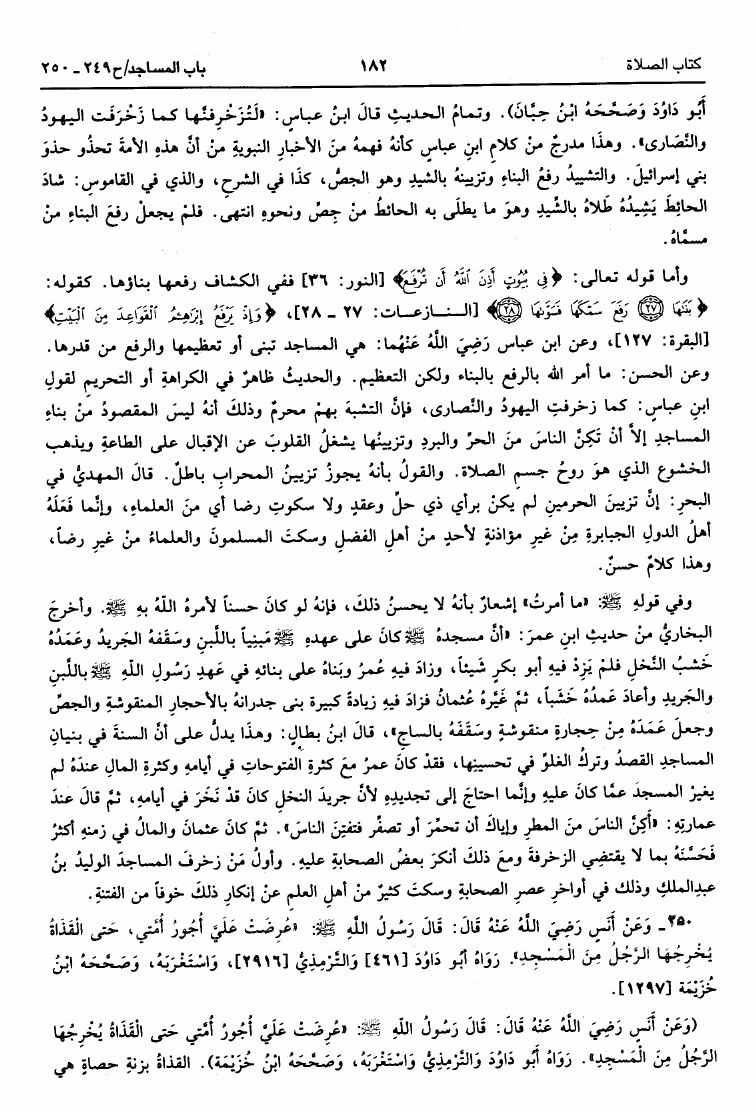 كتاب الصلاة ١٨٢ باب المساجد/ح٢٤٩ ـ ٢٥٠
أَبُو دَاوُدَ وَصَحَّحَهُ ابْنُ حِبَّانَ). وتمامُ الحديثِ قالَ ابنُ عباسٍ: «لَتُزَخْرِفُنَّها كما زَخْرَفَت اليهودُ
والنَّصارى». وهذا مدرجٌ منْ كلامِ ابنِ عباسٍ كأنهُ فهمهُ منَ الأخبارِ النبويةِ منْ أنَّ هذهِ الأمةَ تحذُو حذوَ
بني إسرائيلَ. والتشييدُ رفعُ البناءِ وتزيينُهُ بالشيدِ وهو الجصُّ، كذا في الشرحِ، والذي في القاموسِ: شادَ
الحائِطَ يَشِيدُهُ طَلَاهُ بالشِّيدِ وهوَ ما يطلَى به الحائطُ منْ جِصٍّ ونحوهِ انتهى. فلمْ يجعلْ رفعَ البناءِ منْ
مسمَّاهُ.
وأما قوله تعالى: ﴿فِي بُيُوتٍ أَذِنَ اللَّهُ أَن تُرْفَعَ﴾ [النور: ٣٦] ففي الكشاف رفعها بناؤها. كقوله:
﴿بَنَىٰهَا ﴿٢٧﴾ رَفَعَ سَمْكَهَا فَسَوَّىٰهَا ﴿٢٨﴾﴾ [النازعات: ٢٧ ـ ٢٨]، ﴿وَإِذْ يَرْفَعُ إِبْرَٰهِـۧمُ الْقَوَاعِدَ مِنَ الْبَيْتِ﴾
[البقرة: ١٢٧]، وعن ابن عباس رَضِيَ اللَّهُ عَنْهُما: هي المساجد تبنى أو تعظيمها والرفع من قدرها.
وعن الحسن: ما أمر الله بالرفع بالبناء ولكن التعظيم. والحديثُ ظاهرٌ في الكراهةِ أو التحريمِ لقولِ
ابنِ عباسٍ: كما زخرفتِ اليهودُ والنَّصارى، فإنَّ التشبهَ بهمْ محرمٌ وذلكَ أنهُ ليسَ المقصودُ منْ بناءِ
المساجدِ إلاَّ أنْ تَكِنَّ الناسَ منَ الحرِّ والبردِ وتزيينُها يشغلُ القلوبَ عنِ الإقبالِ على الطاعةِ ويذهبُ
الخشوعَ الذي هوَ روحُ جسمِ الصلاةِ. والقولُ بأنهُ يجوزُ تزيينُ المحرابِ باطلٌ. قالَ المهديُّ في
البحرِ: إنَّ تزيينَ الحرمينِ لم يكنْ برأيِ ذي حلٍّ وعقدٍ ولا سكوتِ رضا أي منَ العلماءِ، وإنَّما فَعَلَهُ
أهلُ الدولِ الجبابرةِ مِنْ غيرِ مؤاذنةٍ لأحدٍ منْ أهلِ الفضلِ وسكتَ المسلمونَ والعلماءُ منْ غيرِ رضاً،
وهذا كلامٌ حسنٌ.
وفي قولهِ ﷺ: «ما أمرتُ» إشعارٌ بأنهُ لا يحسنُ ذلكَ، فإنهُ لو كانَ حسناً لأمرهُ اللَّهُ بهِ ﷺ. وأخرجَ
البخاريُّ منْ حديثِ ابنِ عمرَ: «أنَّ مسجدهُ ﷺ كانَ على عهدِهِ ﷺ مَبنِياً باللَّبنِ وسَقَفهُ الجَرِيدُ وعَمَدُهُ
خَشبُ النَّخلِ فلمْ يَزِدْ فيهِ أبو بكرٍ شَيئاً، وزادَ فيهِ عمرُ وبَناهُ على بنائهِ في عَهدِ رَسُولِ اللَّهِ ﷺ باللَّبنِ
والجَرِيدِ وأعادَ عَمدُهُ خَشَباً، ثمَّ غَيَّرهُ عُثمانُ فزادَ فيهِ زيادةً كبيرة بنى جدرانهُ بالأحجارِ المنقوشةِ والجصِّ
وجعلَ عَمَدَهُ مِنْ حِجارةٍ منقوشةٍ وسَقَفَهُ بالساجِ»، قالَ ابنُ بطالٍ: وهذا يدلُّ على أنَّ السنةَ في بنيانِ
المساجدِ القصدُ وتركُ الغلوِّ في تحسينِها، فقدْ كانَ عمرُ معَ كثرةِ الفتوحاتِ في أيامِهِ وكثرةِ المالِ عندَهُ لم
يغيرِ المسجدَ عمَّا كانَ عليهِ وإنَّما احتاجَ إلى تجديدِهِ لأنَّ جريدَ النخلِ كانَ قدْ نَخَرَ في أيامِهِ، ثمَّ قالَ عندَ
عمارتِهِ: «أَكِنَّ الناسَ منَ المطرِ وإياكَ أن تحمِّرَ أو تصفِّر فتفتِنَ الناسَ». ثمَّ كانَ عثمانُ والمالُ في زمنِهِ أكثرُ
فَحَسَّنَهُ بما لا يقتضي الزخرفةَ ومعَ ذلكَ أنكرَ بعضُ الصحابةِ عليهِ. وأولُ مَنْ زخرفَ المساجدَ الوليدُ بنُ
عبدِالملكِ وذلكَ في أواخرِ عصرِ الصحابةِ وسكتَ كثيرٌ منْ أهلِ العلمِ عنْ إنكارِ ذلكَ خوفاً من الفتنةِ.
٢٥٠ـ وَعَنْ أَنَسٍ رَضِيَ اللَّهُ عَنْهُ قَالَ: قَالَ رَسُولُ اللَّهِ ﷺ: «عُرِضَتْ عَلَيَّ أُجُورُ أُمَّتِي، حَتى الْقَذَاةُ
يُخْرِجُهَا الرَّجُلُ مِنَ الْمَسْجِدِ». رَوَاهُ أَبُو دَاوُدَ [٤٦١] وَالتِّرْمِذِيُّ [٢٩١٦]، وَاسْتَغْرَبَهُ، وَصَحَّحَهُ ابْنُ
خُزَيْمَةَ [١٢٩٧].
(وَعَنْ أَنَسٍ رَضِيَ اللَّهُ عَنْهُ قَالَ: قَالَ رَسُولُ اللَّهِ ﷺ: «عُرِضَتْ عَلَيَّ أُجُورُ أُمَّتي حَتى الْقَذَاةُ يُخْرِجُهَا
الرَّجُلُ مِنَ الْمَسْجِدِ». رَوَاهُ أَبُو دَاوُدَ وَالتِّرْمِذِيُّ وَاسْتَغْرَبَهُ، وَصَحَّحَهُ ابْنُ خُزَيْمَةَ). القذاةُ بزنةِ حصاةٍ هي